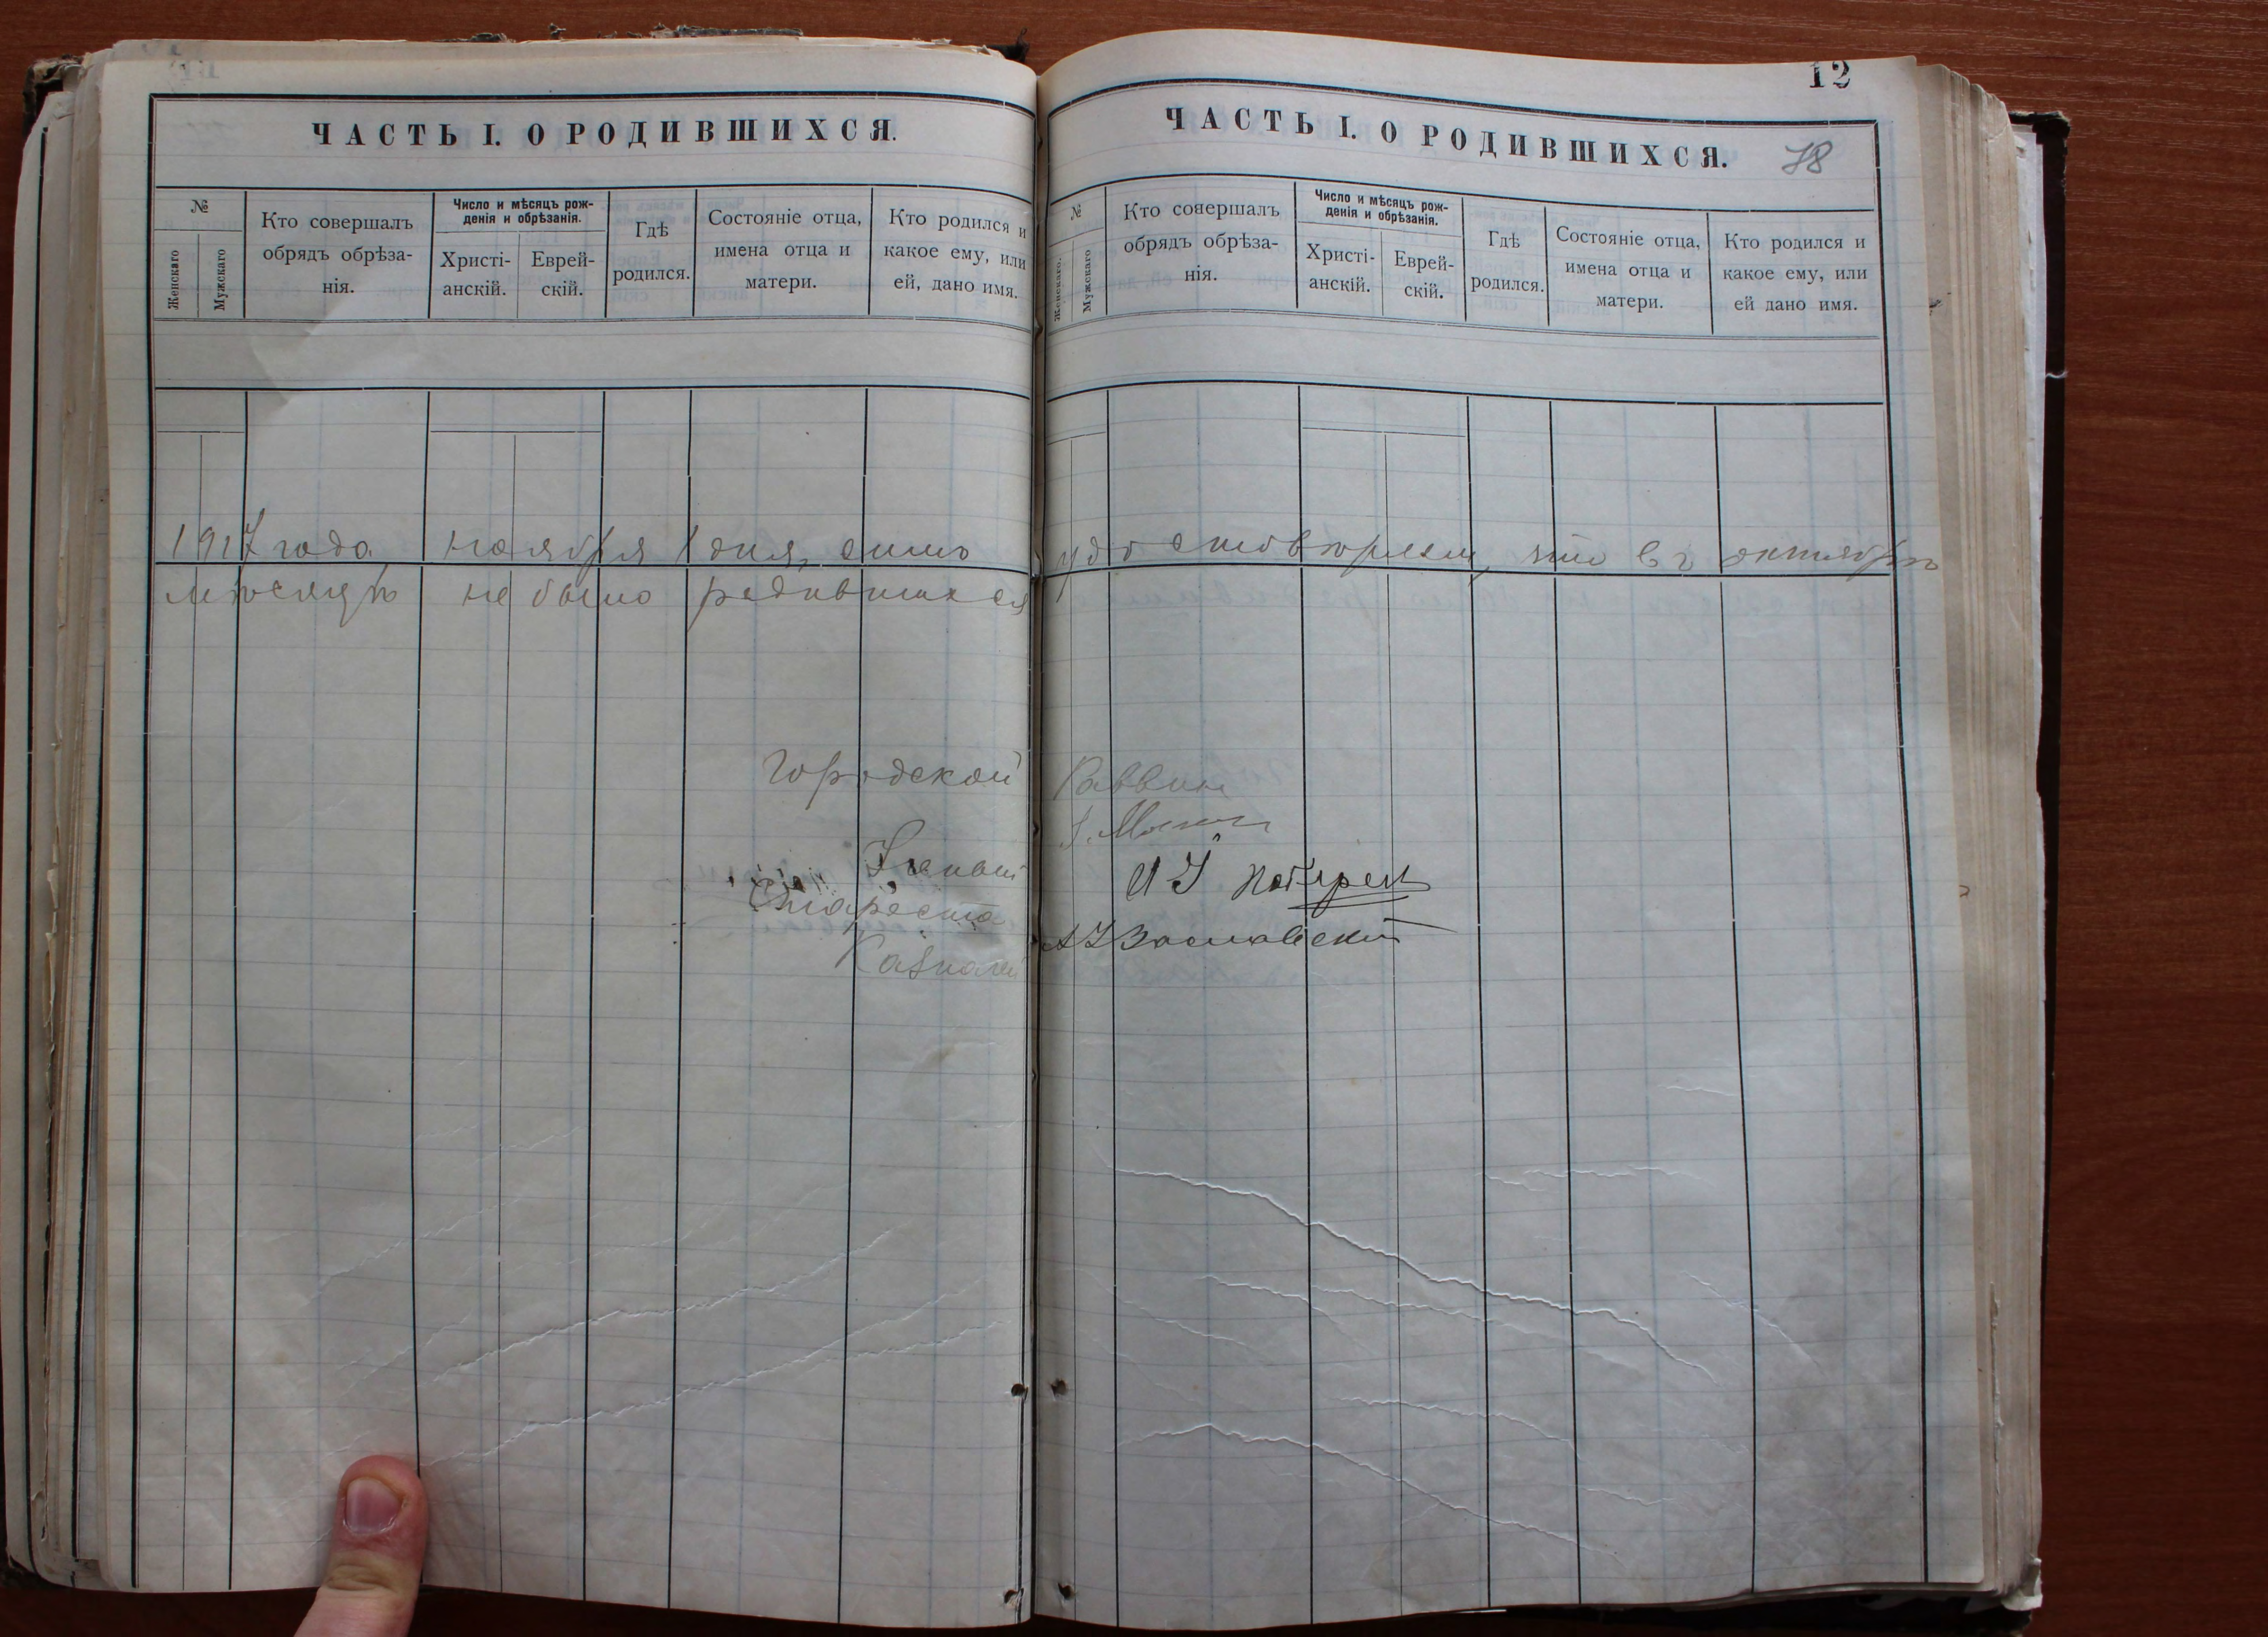 12
ЧАСТЬ I. О РОДИВШИХСЯ.
№
Женскаго
Мужскаго
Кто совершалъ
обрядъ обрѣза-
нія.
Число и мѣсяцъ рож-
денія и обрѣзанія.
Христі-
анскій.
Еврей-
скій.
Гдѣ
родился.
Состояніе отца,
имена отца и
матери.
Кто родился и
какое ему, или
ей, дано имя.
ЧАСТЬ I. О РОДИВШИХСЯ.
78
№
Женскаго.
Мужскаго
Кто совершалъ
обрядъ обрѣза-
нія.
Число и мѣсяцъ рож-
денія и обрѣзанія.
Христі-
анскій.
Еврей-
скій.
Гдѣ
родился.
Состояніе отца,
имена отца и
матери.
Кто родился и
какое ему, или
ей дано имя.
1917 года ноября 1 дня, симъ удостовѣряемъ, что въ октябрѣ
мѣсяцѣ не было родившихся
Городской Раввинъ
Ученый
Староста
Казначей
Заславскій